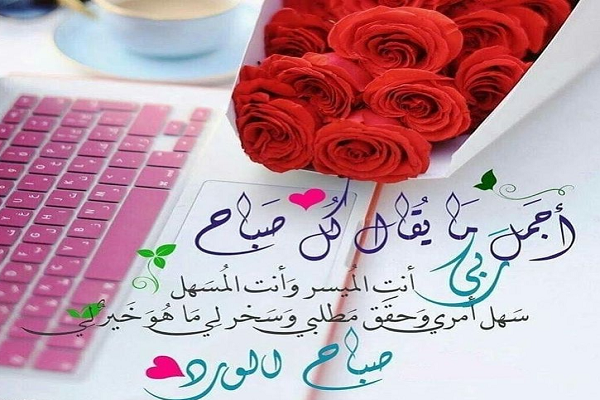 أجمل ما يُقال كُل صباح
ربي
أنت الميسر وَأنت المُسَهل
سَهل أمري وَحقق مَطلبي وَسَخر لي مَا هُوَ خَيرٌ لي
صباح الورد